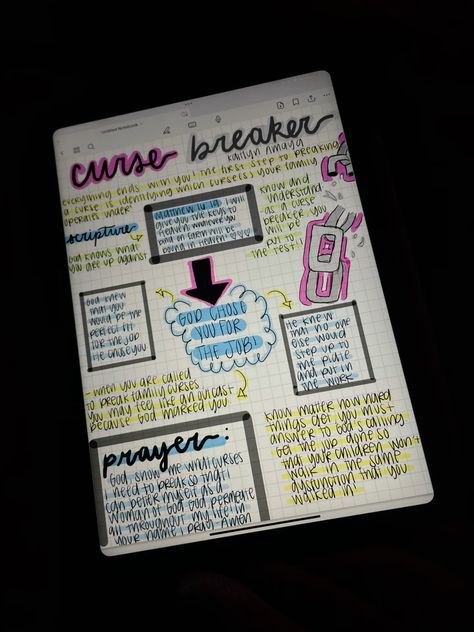 Untitled Notebook
curse breaker
Kaitlyn Amaya
everything ends with you! the first step to breaking
a curse is identifying which curse(s) your family
operates under
scripture
God knows what
you are up against
Matthew 16:19 I will
give you the keys to
heaven, whatever you
bind on earth will be
bound in heaven
know and
understand
as a curse
breaker you
will be
put to
the test!!
God knew
that you
would be the
perfect fit
for the job
He chose you
GOD CHOSE
YOU FOR
THE JOB!
He knew
that no one
else would
step up to
the plate
and put in
the work
- when you are called
to break family curses
you may feel like an outcast
because God marked you
prayer:
God, show me what curses
need to break so that I
can better myself as a
woman of God. God
all throughout my life! in
your name I pray, Amen
know matter how hard
things get you must
answer to God's calling.
get the job done so
that your children won't
walk in the same
dysfunction that you
walked in